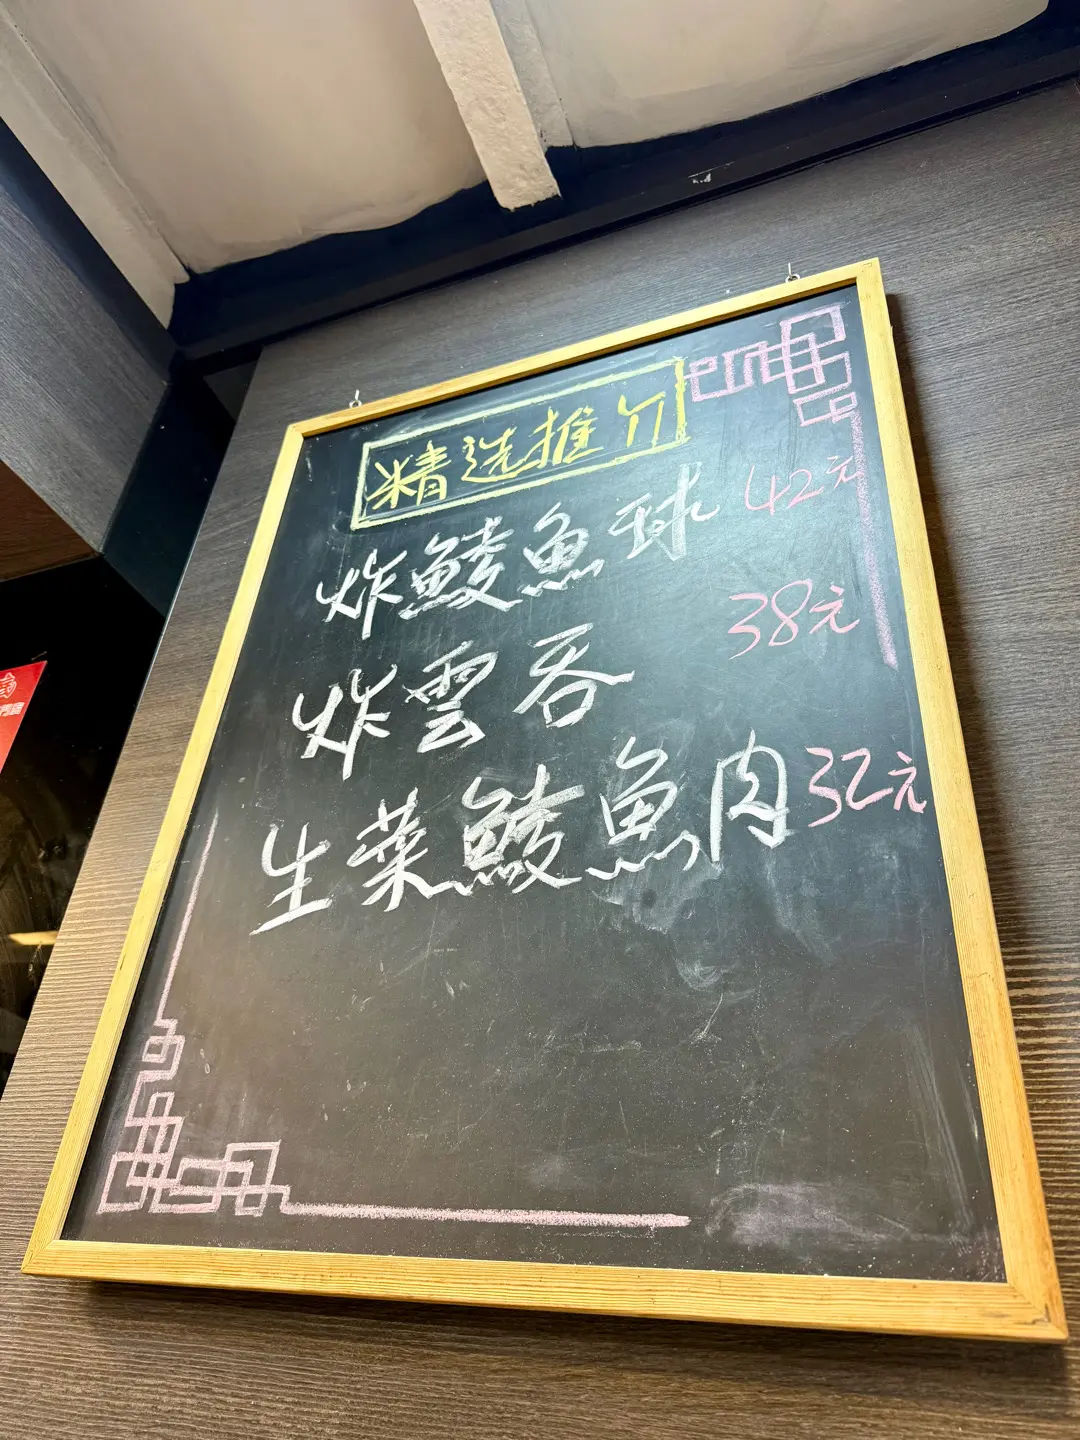 精选推介
炸鯪魚球 42元
炸雲吞 38元
生菜鯪魚肉 32元